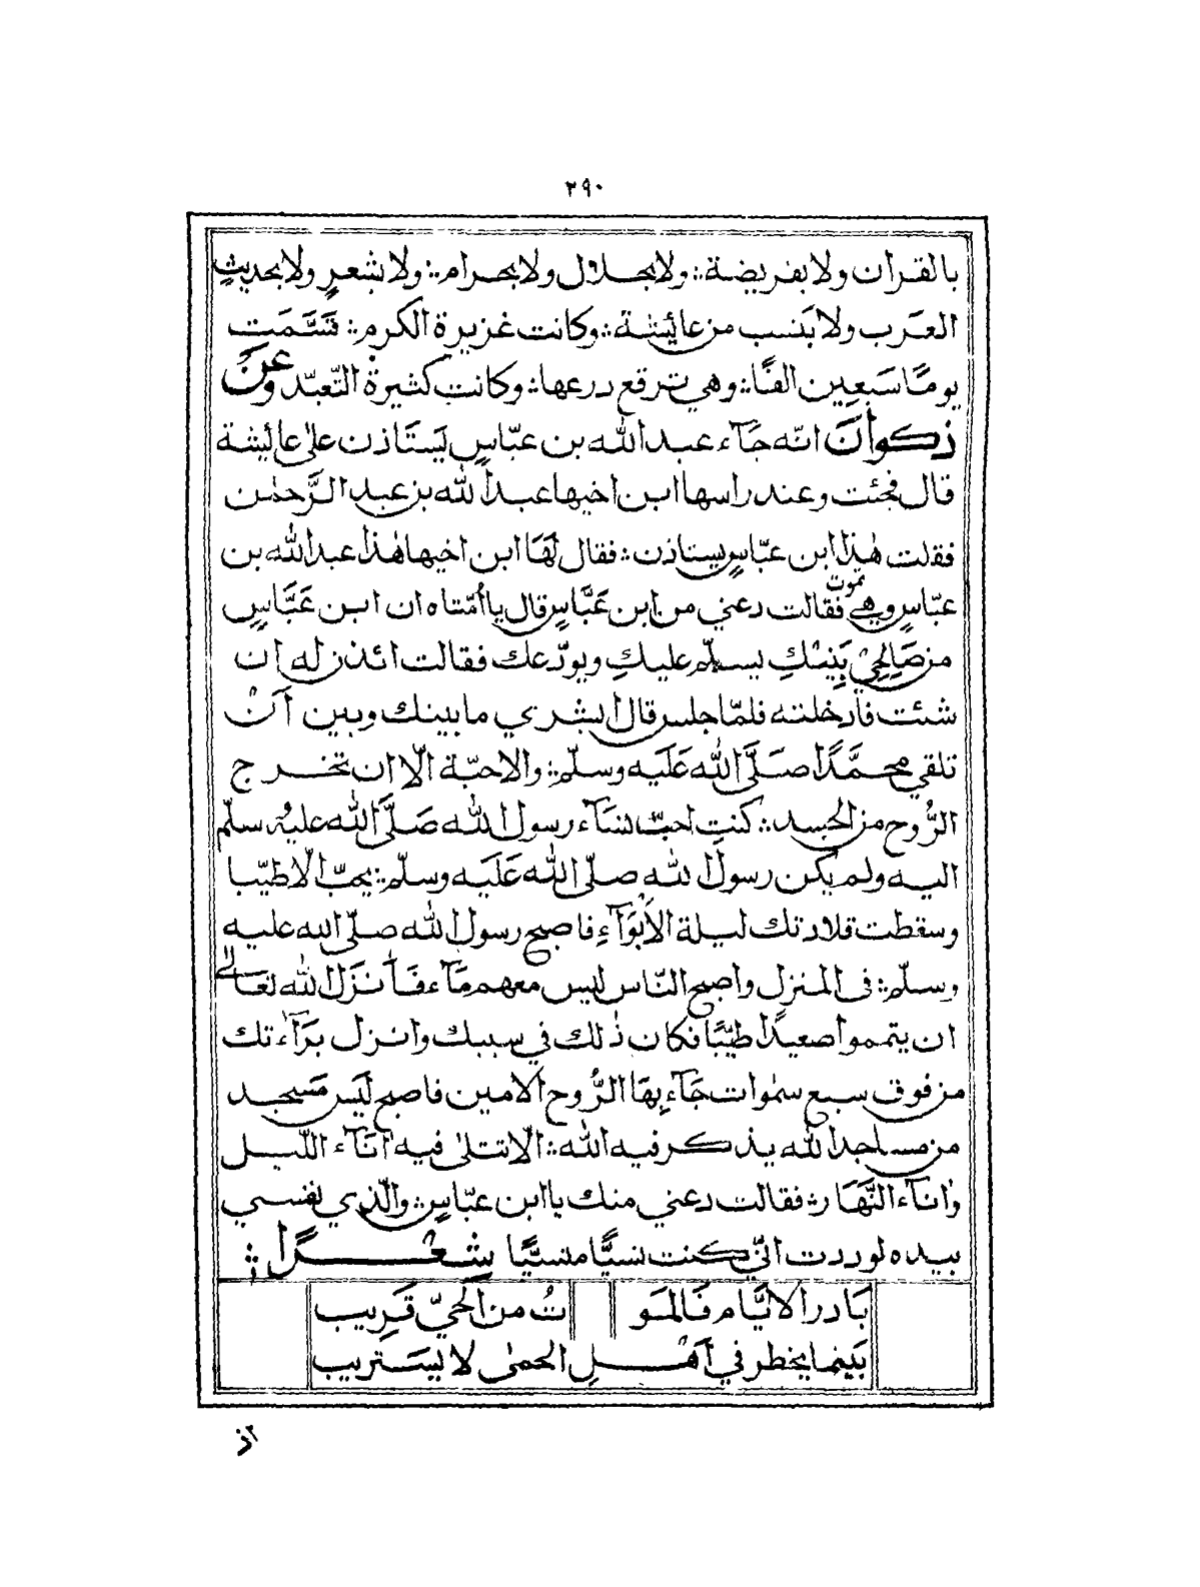 ٢٩٠
بالقرآن ولا بفريضة ؞ ولا بحلال ولا بحرام ؞ ولا شعرٍ ولا بحديثِ
العَرب ولا بنسب من عائشة ؞ وكانت غزيرة الكرم ؞ قسَّمَت
يومًا سَبعين الفًا ؞ وهي ترقع درعها ؞ وكانت كثيرة التّعبّد وعن
ذكوان انّه جآء عبد الله بن عبّاسٍ يَستَاذن على عائشة
قال فجئت وعند راسها ابن اخيها عبد الله بن عبد الرَّحمٰن
فقلت هٰذا ابن عبّاسٍ يستاذن ؞ فقال لهَا ابن اخيها هٰذا عبد الله بن
عبّاسٍ وهي تموت فقالت دعني من ابن عَبَّاسٍ قال يا اُمّتاه ان ابن عَبَّاسٍ
من صَالِحِيْ بَنِيْكِ يسلّم عليكِ ويودّعك فقالت ائذن له ان
شئت فادخلته فلمّا جلس قال ابشري ما بينك وبين اَنْ
تلقي محمَّدًا صَلَّى الله عَلَيه وسلّم ؞ والاحبّة الّا ان تخرج
الرُّوح من الجسد ؞ كنتِ احبّ نسَآء رسول الله صَلَّى الله عليه وسلّم
اليه ولم يكن رسول الله صلّى الله عَلَيه وسلّم ؞ يحبّ الّا طيّبا
وسقطت قلادتك ليلة الأَبْوَآءِ فاصبح رسول الله صلّى الله عليه
وسلّم ؞ في المنزل واصبح النّاس ليس معهم مَآء فَأَنزَل الله تعالىٰ
ان يتمموا صعيدًا طيّبًا فكان ذٰلك في سببك وانزل برَآءتك
من فوق سبع سمٰوات جَآء بِهَا الرُّوح الامين فاصبح لَيس مَسجد
من مساجد الله يذكر فيه الله ؞ الّا تتلىٰ فيه اٰنَآء اللّيل
واٰنآء النَّهَار ؞ فقالت دعني منك يا ابن عبّاسٍ ؞ والّذي نفسي
بيده لوددت انّي كنت نسيًّا منسيًّا شعْرًا ؞
بَادر الايَّام فَالمَو تُ من الحيّ قَرِيب
بَينما يخطر في اَهْلِ الحمىٰ لا يستَريب